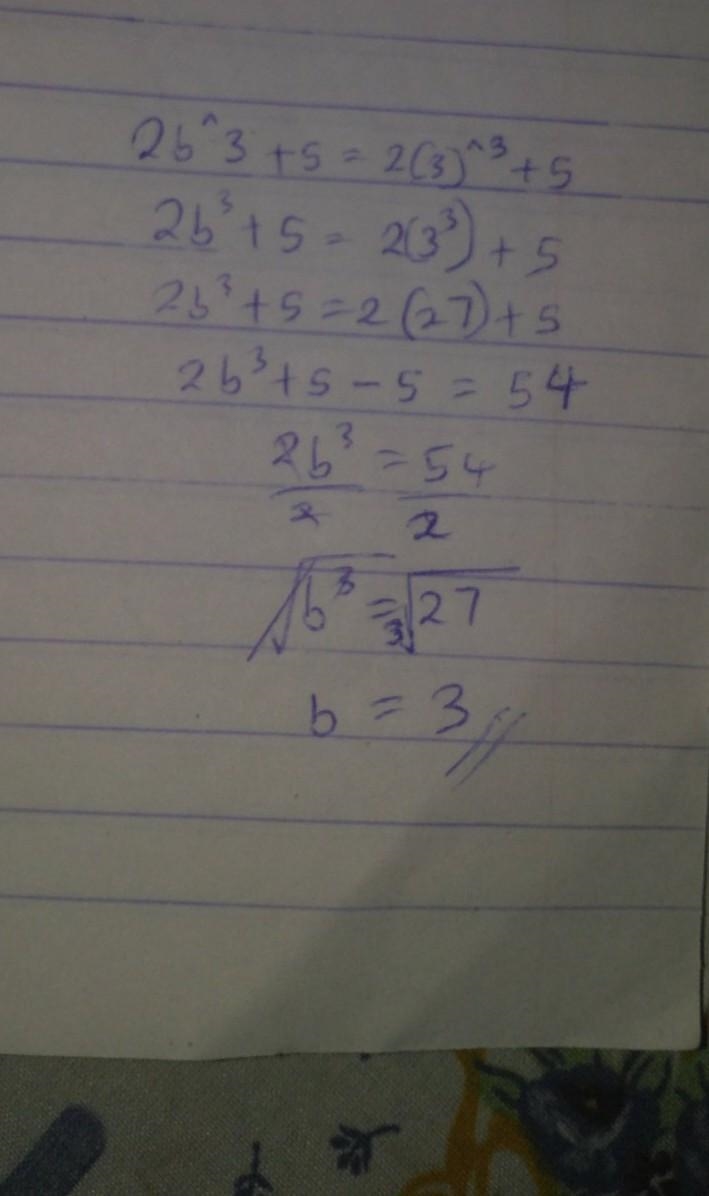 2b^3 + 5 = 2(3)^3 + 5
2b³ + 5 = 2(3³) + 5
2b³ + 5 = 2(27) + 5
2b³ + 5 - 5 = 54
2b³/2 = 54/2
√b³ = ³√27
b = 3//